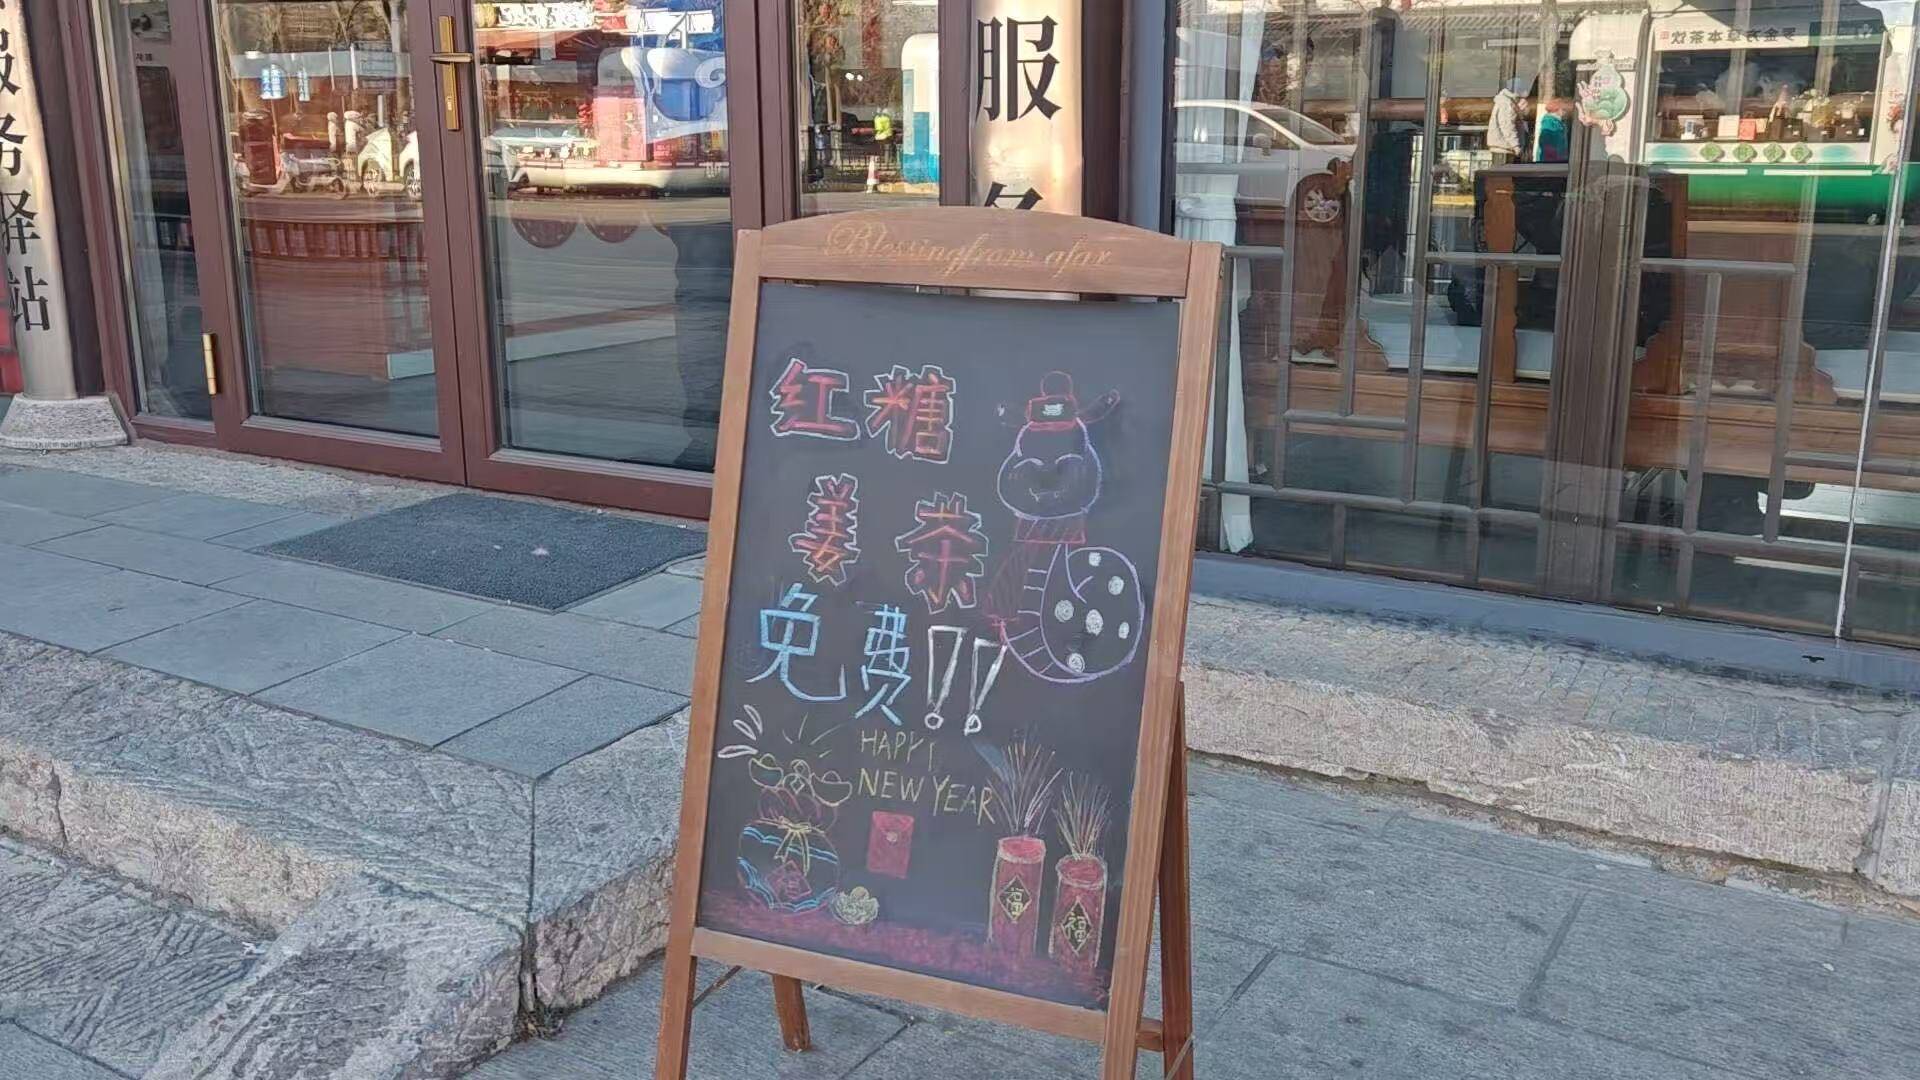 服务驿站
服务
Blessing from afar
红糖
姜茶
免费!!
HAPPY
NEW YEAR
福
福